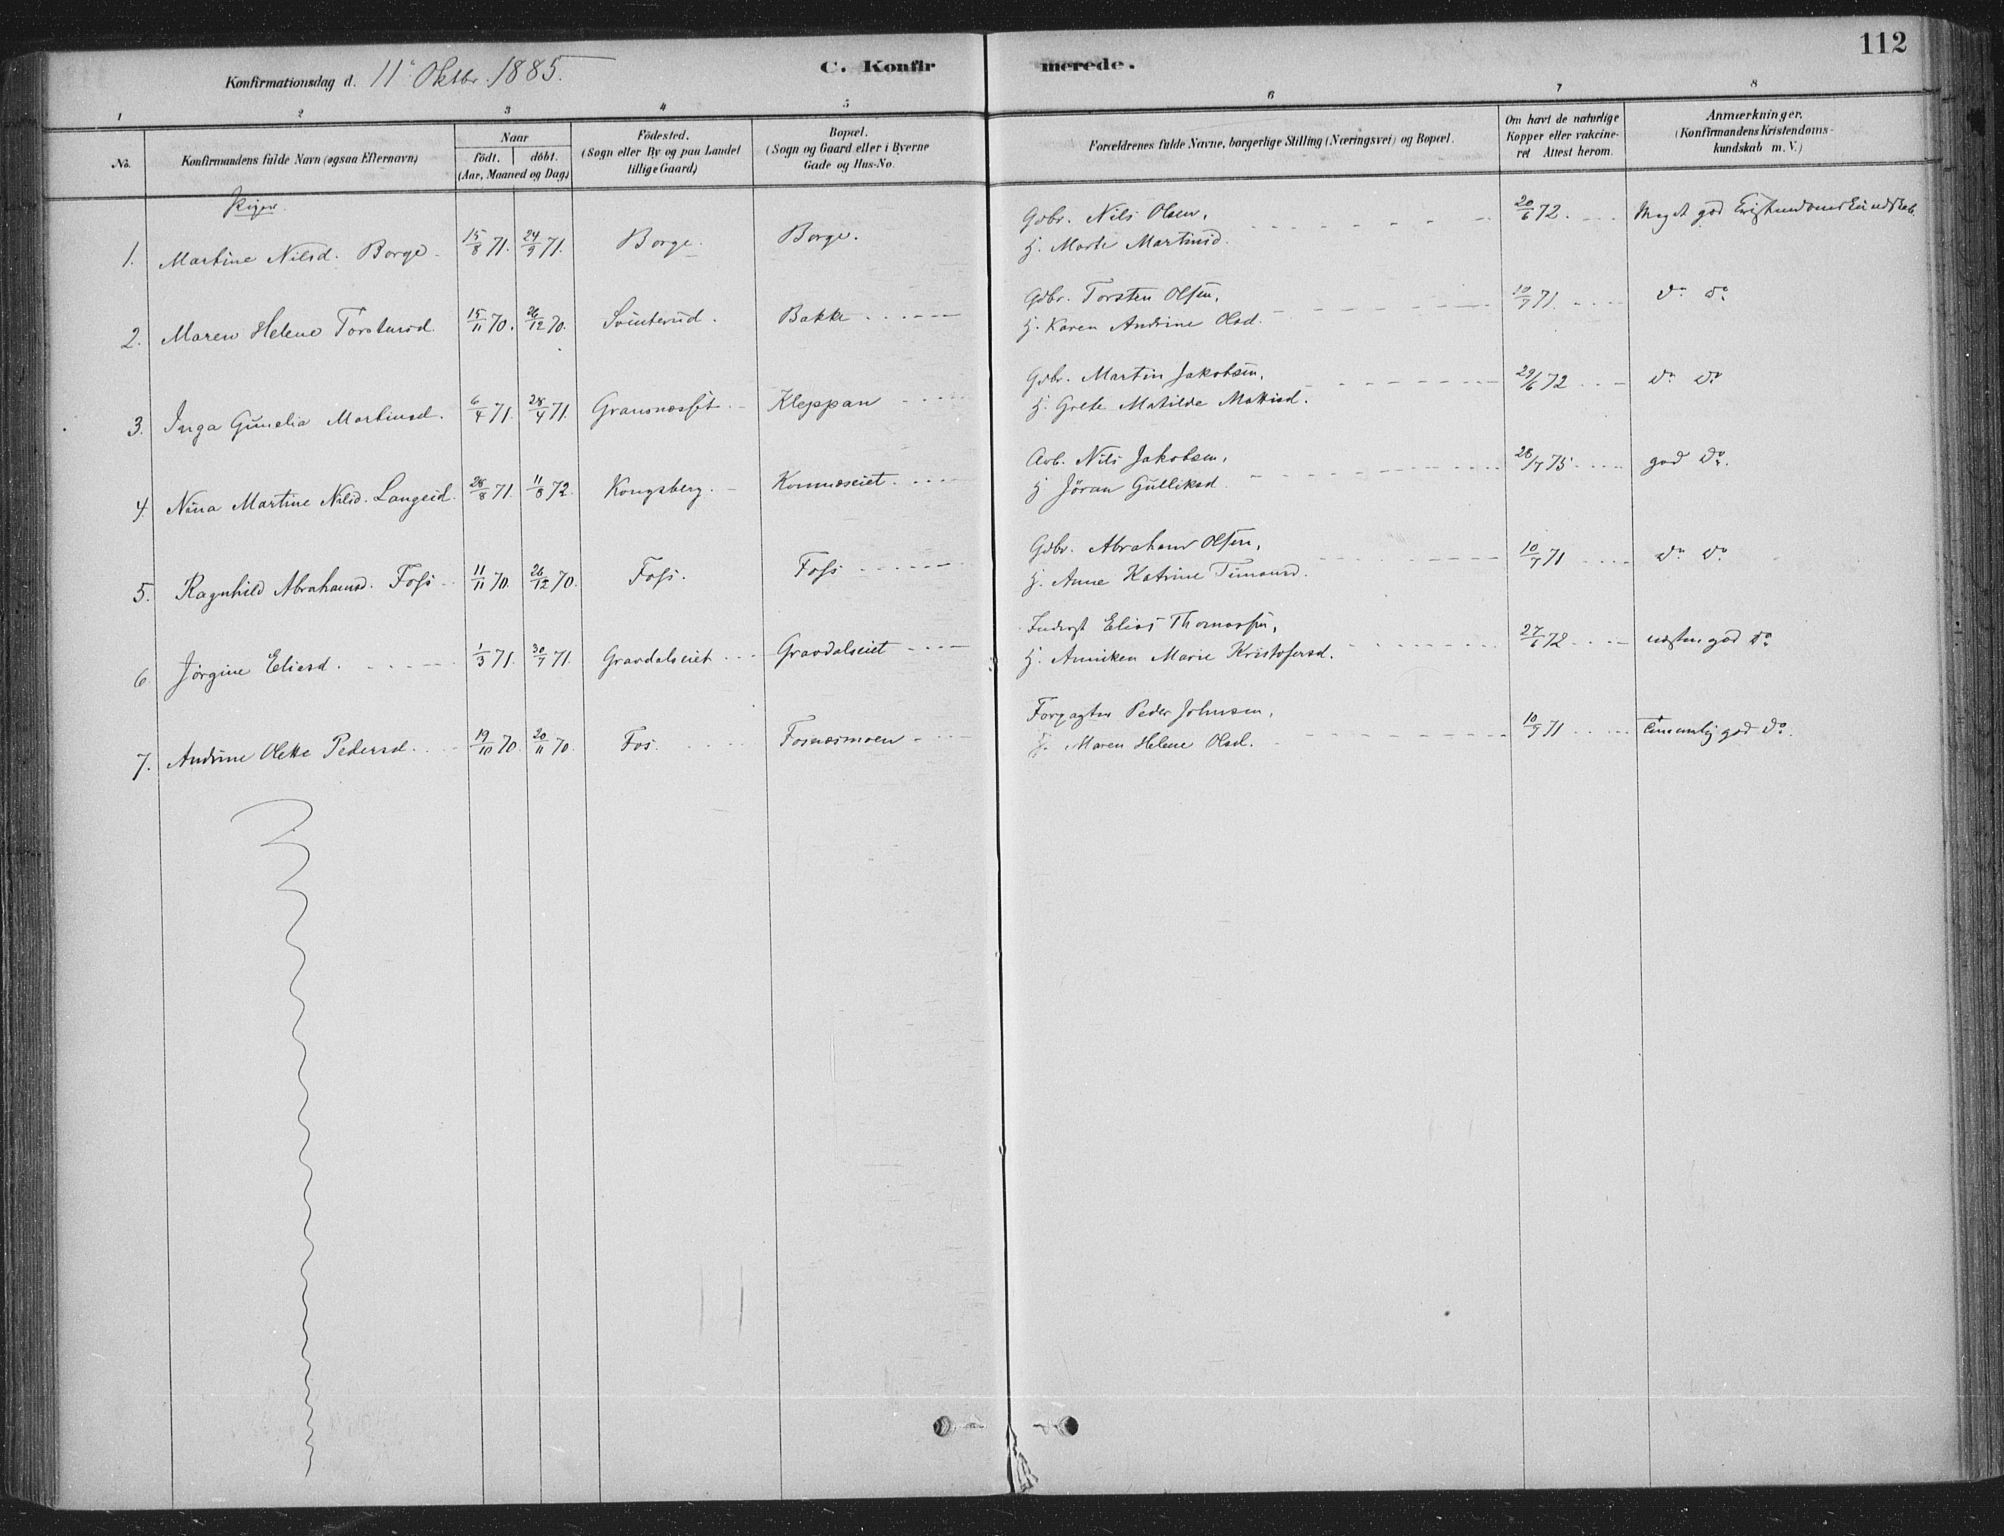 112
Konfirmationsdag d. 11' Oktbr. 1885.
C. Konfir merede.
1 2 3 4 5 6 7 8
No.
Konfirmandens fulde Navn (ogsaa Efternavn)
Naar
födt. döbt.
(Aar, Maaned og Dag)
Födested.
(Sogn eller By og paa Landet
tillige Gaard)
Bopæl.
(Sogn og Gaard eller i Byerne
Gade og Hus-No.
Forældrenes fulde Navne, borgerlige Stilling (Næringsvei) og Bopæl.
Om havt de naturlige
Kopper eller vakcine-
ret Attest herom.
Anmærkninger.
(Konfirmandens Kristendoms-
kundskab m. V.)
Piger.
1. Martine Nilsd. Borge 15/8 71. 24/9 71. Borge. Borge. Gdbr. Nils Olsen, 20/6 72. Meget god Cristendomskundskab.
H. Marte Martinsd.
2. Maren Helene Torstensd. 15/11 70. 26/12 70. Svinterud. Bakke Gdbr. Torsten Olsen, 10/7 71. do do
H. Karen Andrine Olsd.
3. Inga Gunelia Martinsd. 6/4 71. 28/4 71. Gransnæsset Kleppan Gdbr. Martin Jakobsen, 29/6 72 do do
H. Grete Matilde Mattisd.
4. Nina Martine Nilsd. Langeid. 28/8 71. 11/8 72. Kongsberg. Komnæseiet. Arb. Nils Jakobsen, 28/7 75 god do.
H. Jöran Gulliksd
5. Ragnhild Abrahamsd. Foss 11/11 70. 26/12 70. Foss. Foss Gdbr. Abraham Olsen, 10/7 71 do do
H. Anne Katrine Timansd.
6 Jörgine Eliesd. 1/3 71. 30/7 71. Gravdalseiet Gravdalseiet Inderst Elias Thomassen, 27/6 72 næsten god do
H. Anniken Marie Kristofersd.
7. Andrine Olette Pedersd. 19/10 70. 20/11 70. Fos. Fosnæsmoen Forpagter Peder Johnsen, 10/9 71 temmelig god do.
H. Maren Helene Olsd.